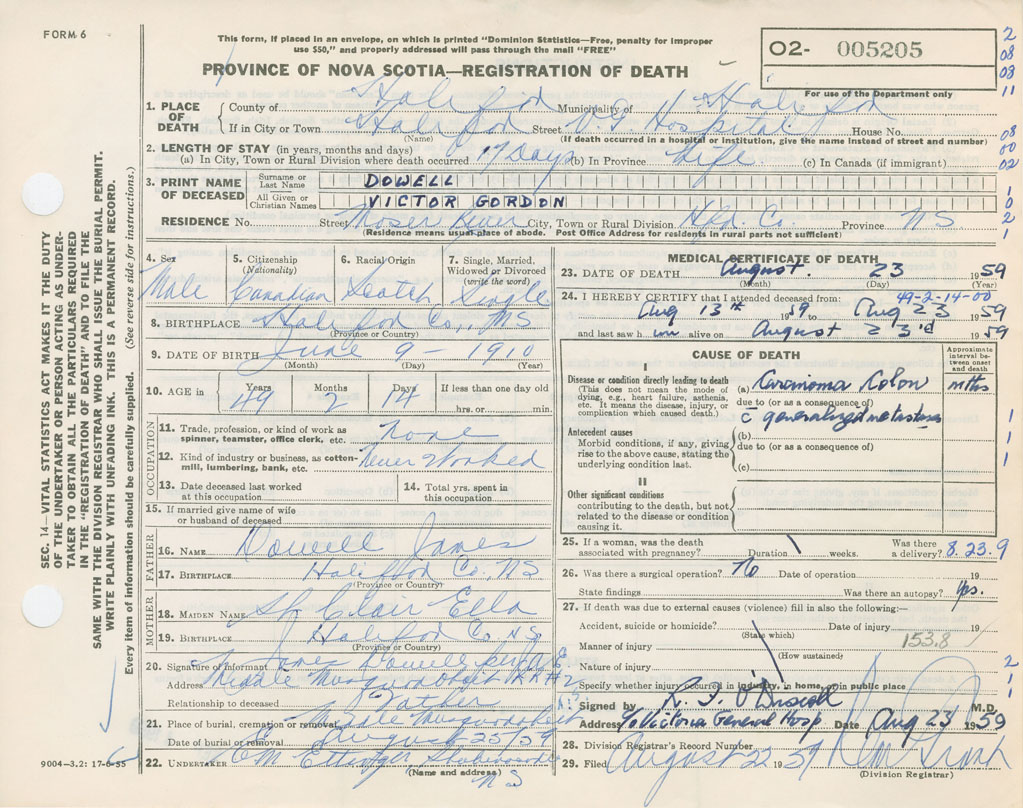 FORM 6
This form, if placed in an envelope, on which is printed "Dominion Statistics—Free, penalty for improper
use $50," and properly addressed will pass through the mail "FREE"
PROVINCE OF NOVA SCOTIA—REGISTRATION OF DEATH
O2- 005205
For use of the Department only
2
08
08
11
1. PLACE OF DEATH
County of Halifax Municipality of Halifax
If in City or Town Halifax Street V.G. Hospital House No.
(Name) (If death occurred in a hospital or institution, give the name instead of street and number)
08
00
02
2. LENGTH OF STAY (in years, months and days)
(a) In City, Town or Rural Division where death occurred 17 Days (b) In Province Life (c) In Canada (if immigrant)
3. PRINT NAME OF DECEASED
Surname or Last Name DOWELL
All Given or Christian Names VICTOR GORDON
1
0
2
1
RESIDENCE No. Street Moser River City, Town or Rural Division Hfx. Co. Province NS
(Residence means usual place of abode. Post Office Address for residents in rural parts not sufficient)
4. Sex 5. Citizenship 6. Racial Origin 7. Single, Married,
(Nationality) Widowed or Divorced
(write the word)
Male Canadian Scotch Single
8. BIRTHPLACE Halifax Co., NS
(Province or Country)
9. DATE OF BIRTH June 9 - 1910
(Month) (Day) (Year)
10. AGE in Years Months Days If less than one day old
49 2 14 hrs. or min.
OCCUPATION
11. Trade, profession, or kind of work as
spinner, teamster, office clerk, etc. none
12. Kind of industry or business, as cotton-
mill, lumbering, bank, etc. Never Worked
13. Date deceased last worked
at this occupation
14. Total yrs. spent in
this occupation
15. If married give name of wife
or husband of deceased
FATHER
16. NAME Dowell James
17. BIRTHPLACE Halifax Co., NS
(Province or Country)
MOTHER
18. MAIDEN NAME St Clair Ella
19. BIRTHPLACE Halifax Co NS
(Province or Country)
20. Signature of informant James Dowell
Address Middle Musquodoboit RR #2
Relationship to deceased Father
21. Place of burial, cremation or removal Middle Musquodoboit
Date of burial or removal August 25/59
22. UNDERTAKER
(Name and address)
NS
MEDICAL CERTIFICATE OF DEATH
23. DATE OF DEATH August 23 1959
(Month) (Day) (Year)
49-2-14-00
24. I HEREBY CERTIFY that I attended deceased from:
Aug 13th 1959 to Aug 23 1959
and last saw him alive on August 23rd 1959
CAUSE OF DEATH
Approximate
interval be-
tween onset
and death
I
Disease or condition directly leading to death
(This does not mean the mode of
dying, e.g., heart failure, asthenia,
etc. It means the disease, injury, or
complication which caused death.)
(a) Carcinoma Colon mths
due to (or as a consequence of)
c̄ generalized metastases
1
1
1
Antecedent causes
Morbid conditions, if any, giving
rise to the above cause, stating the
underlying condition last.
(b)
due to (or as a consequence of)
(c)
II
Other significant conditions
contributing to the death, but not
related to the disease or condition
causing it.
25. If a woman, was the death Was there
associated with pregnancy? Duration weeks. a delivery? 8.23.9
26. Was there a surgical operation? No Date of operation 19
State findings Was there an autopsy? Yes.
27. If death was due to external causes (violence) fill in also the following:—
Accident, suicide or homicide? Date of injury 19
(State which)
Manner of injury 153.8
(How sustained)
Nature of injury
2
1
Specify whether injury occurred in industry, in home, or in public place
Signed by R. F. O'Driscoll M.D.
Address Victoria General Hosp Date Aug 23 1959
28. Division Registrar's Record Number
29. Filed August 1959
(Division Registrar)
SEC. 14—VITAL STATISTICS ACT MAKES IT THE DUTY
OF THE UNDERTAKER OR PERSON ACTING AS UNDER-
TAKER TO OBTAIN ALL THE PARTICULARS REQUIRED
IN THE "REGISTRATION OF DEATH" AND TO FILE THE
SAME WITH THE DIVISION REGISTRAR WHO SHALL ISSUE THE BURIAL PERMIT.
WRITE PLAINLY WITH UNFADING INK. THIS IS A PERMANENT RECORD.
Every item of information should be carefully supplied. (See reverse side for instructions.)
9004-3.2: 17-6-55